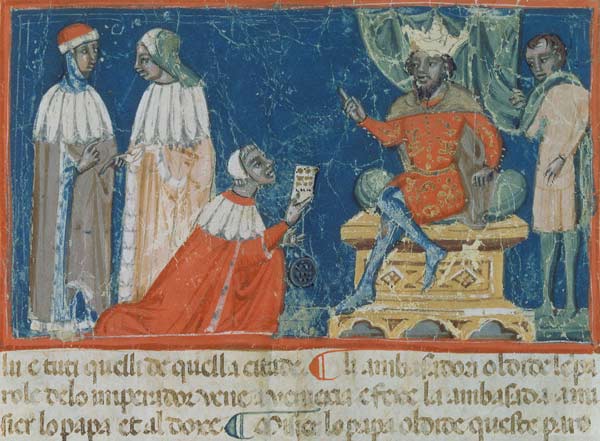 lui e tuti quelli de quella citade. Li ambasadori oldide le pa
role delo imperador vene a venexia e fexe la ambasada a mi
sier lo papa et al doxe Misier lo papa oldide queste paro